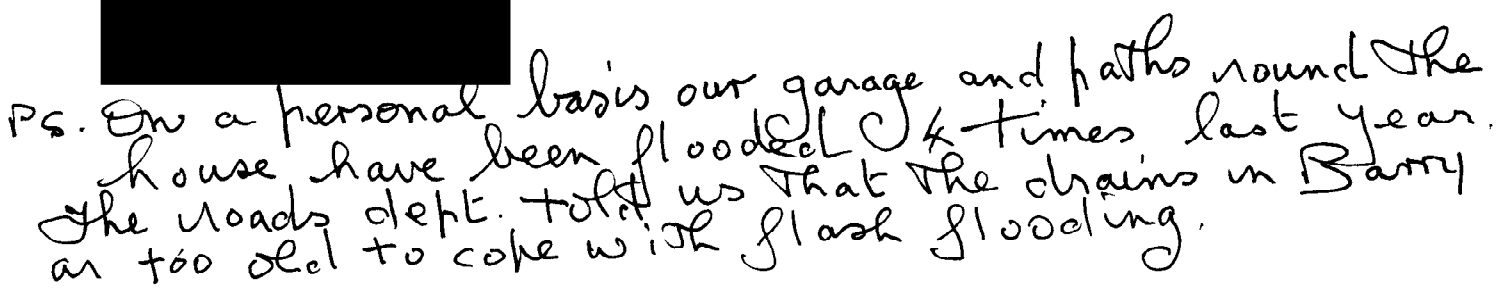 PS. On a personal basis our garage and paths round the
house have been flooded 4 times last year.
The roads dept. told us that the drains in Barry
are too old to cope with flash flooding.